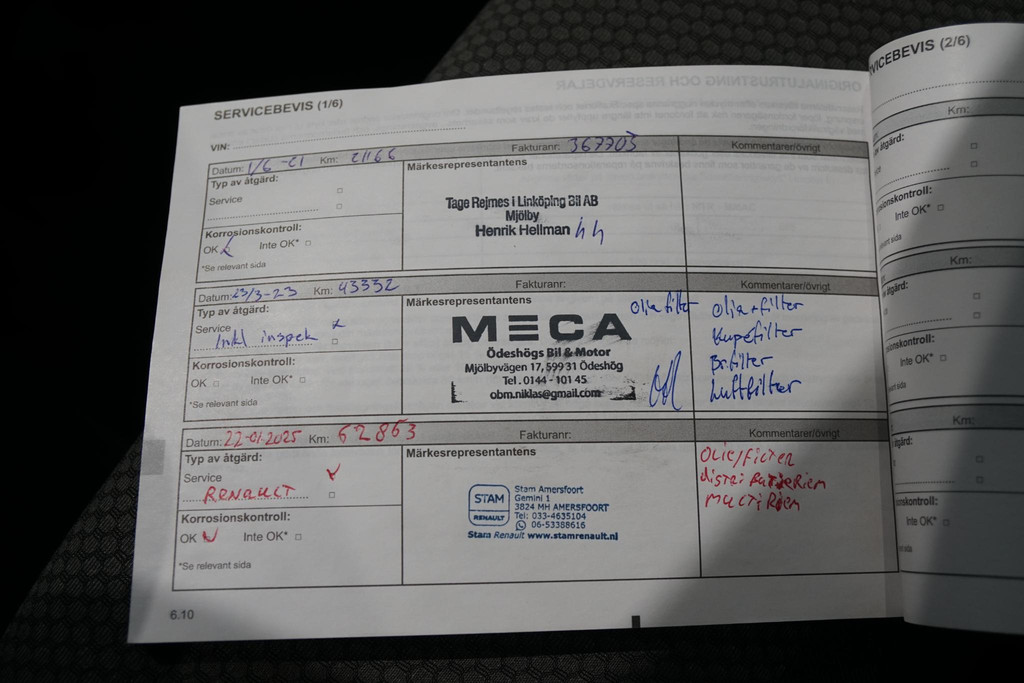 SERVICEBEVIS (1/6)
VIN:
Datum: 1/6 -21 Km: 21166 Fakturanr: 367703 Kommentarer/övrigt
Typ av åtgärd:
Service
Korrosionskontroll:
OK Inte OK*
*Se relevant sida
Märkesrepresentantens
Tage Rejmes i Linköping Bil AB
Mjölby
Henrik Hellman
Datum: 23/3-23 Km: 43332 Fakturanr: Kommentarer/övrigt
Typ av åtgärd:
Service x
Inkl inspek
Korrosionskontroll:
OK Inte OK*
*Se relevant sida
Märkesrepresentantens
MECA
Ödeshögs Bil & Motor
Mjölbyvägen 17, 599 31 Ödeshög
Tel. 0144 - 101 45
obm.niklas@gmail.com
Olja filter
Olja + filter
Kupefilter
Br.filter
Luftfilter
Datum: 22-01-2025 Km: 62863 Fakturanr: Kommentarer/övrigt
Typ av åtgärd:
Service
RENAULT
Korrosionskontroll:
OK Inte OK*
*Se relevant sida
Märkesrepresentantens
STAM
RENAULT
Stam Amersfoort
Gemini 1
3824 MH AMERSFOORT
Tel: 033-4635104
06-53388616
Stam Renault www.stamrenault.nl
OLIE/FILTER
MULTIRIEM
6.10
VICEBEVIS (2/6)
Km:
åtgärd:
sionskontroll:
Inte OK*
vant sida
Km:
åtgärd:
osionskontroll:
Inte OK*
vant sida
Km:
åtgärd:
onskontroll:
Inte OK*
ant sida